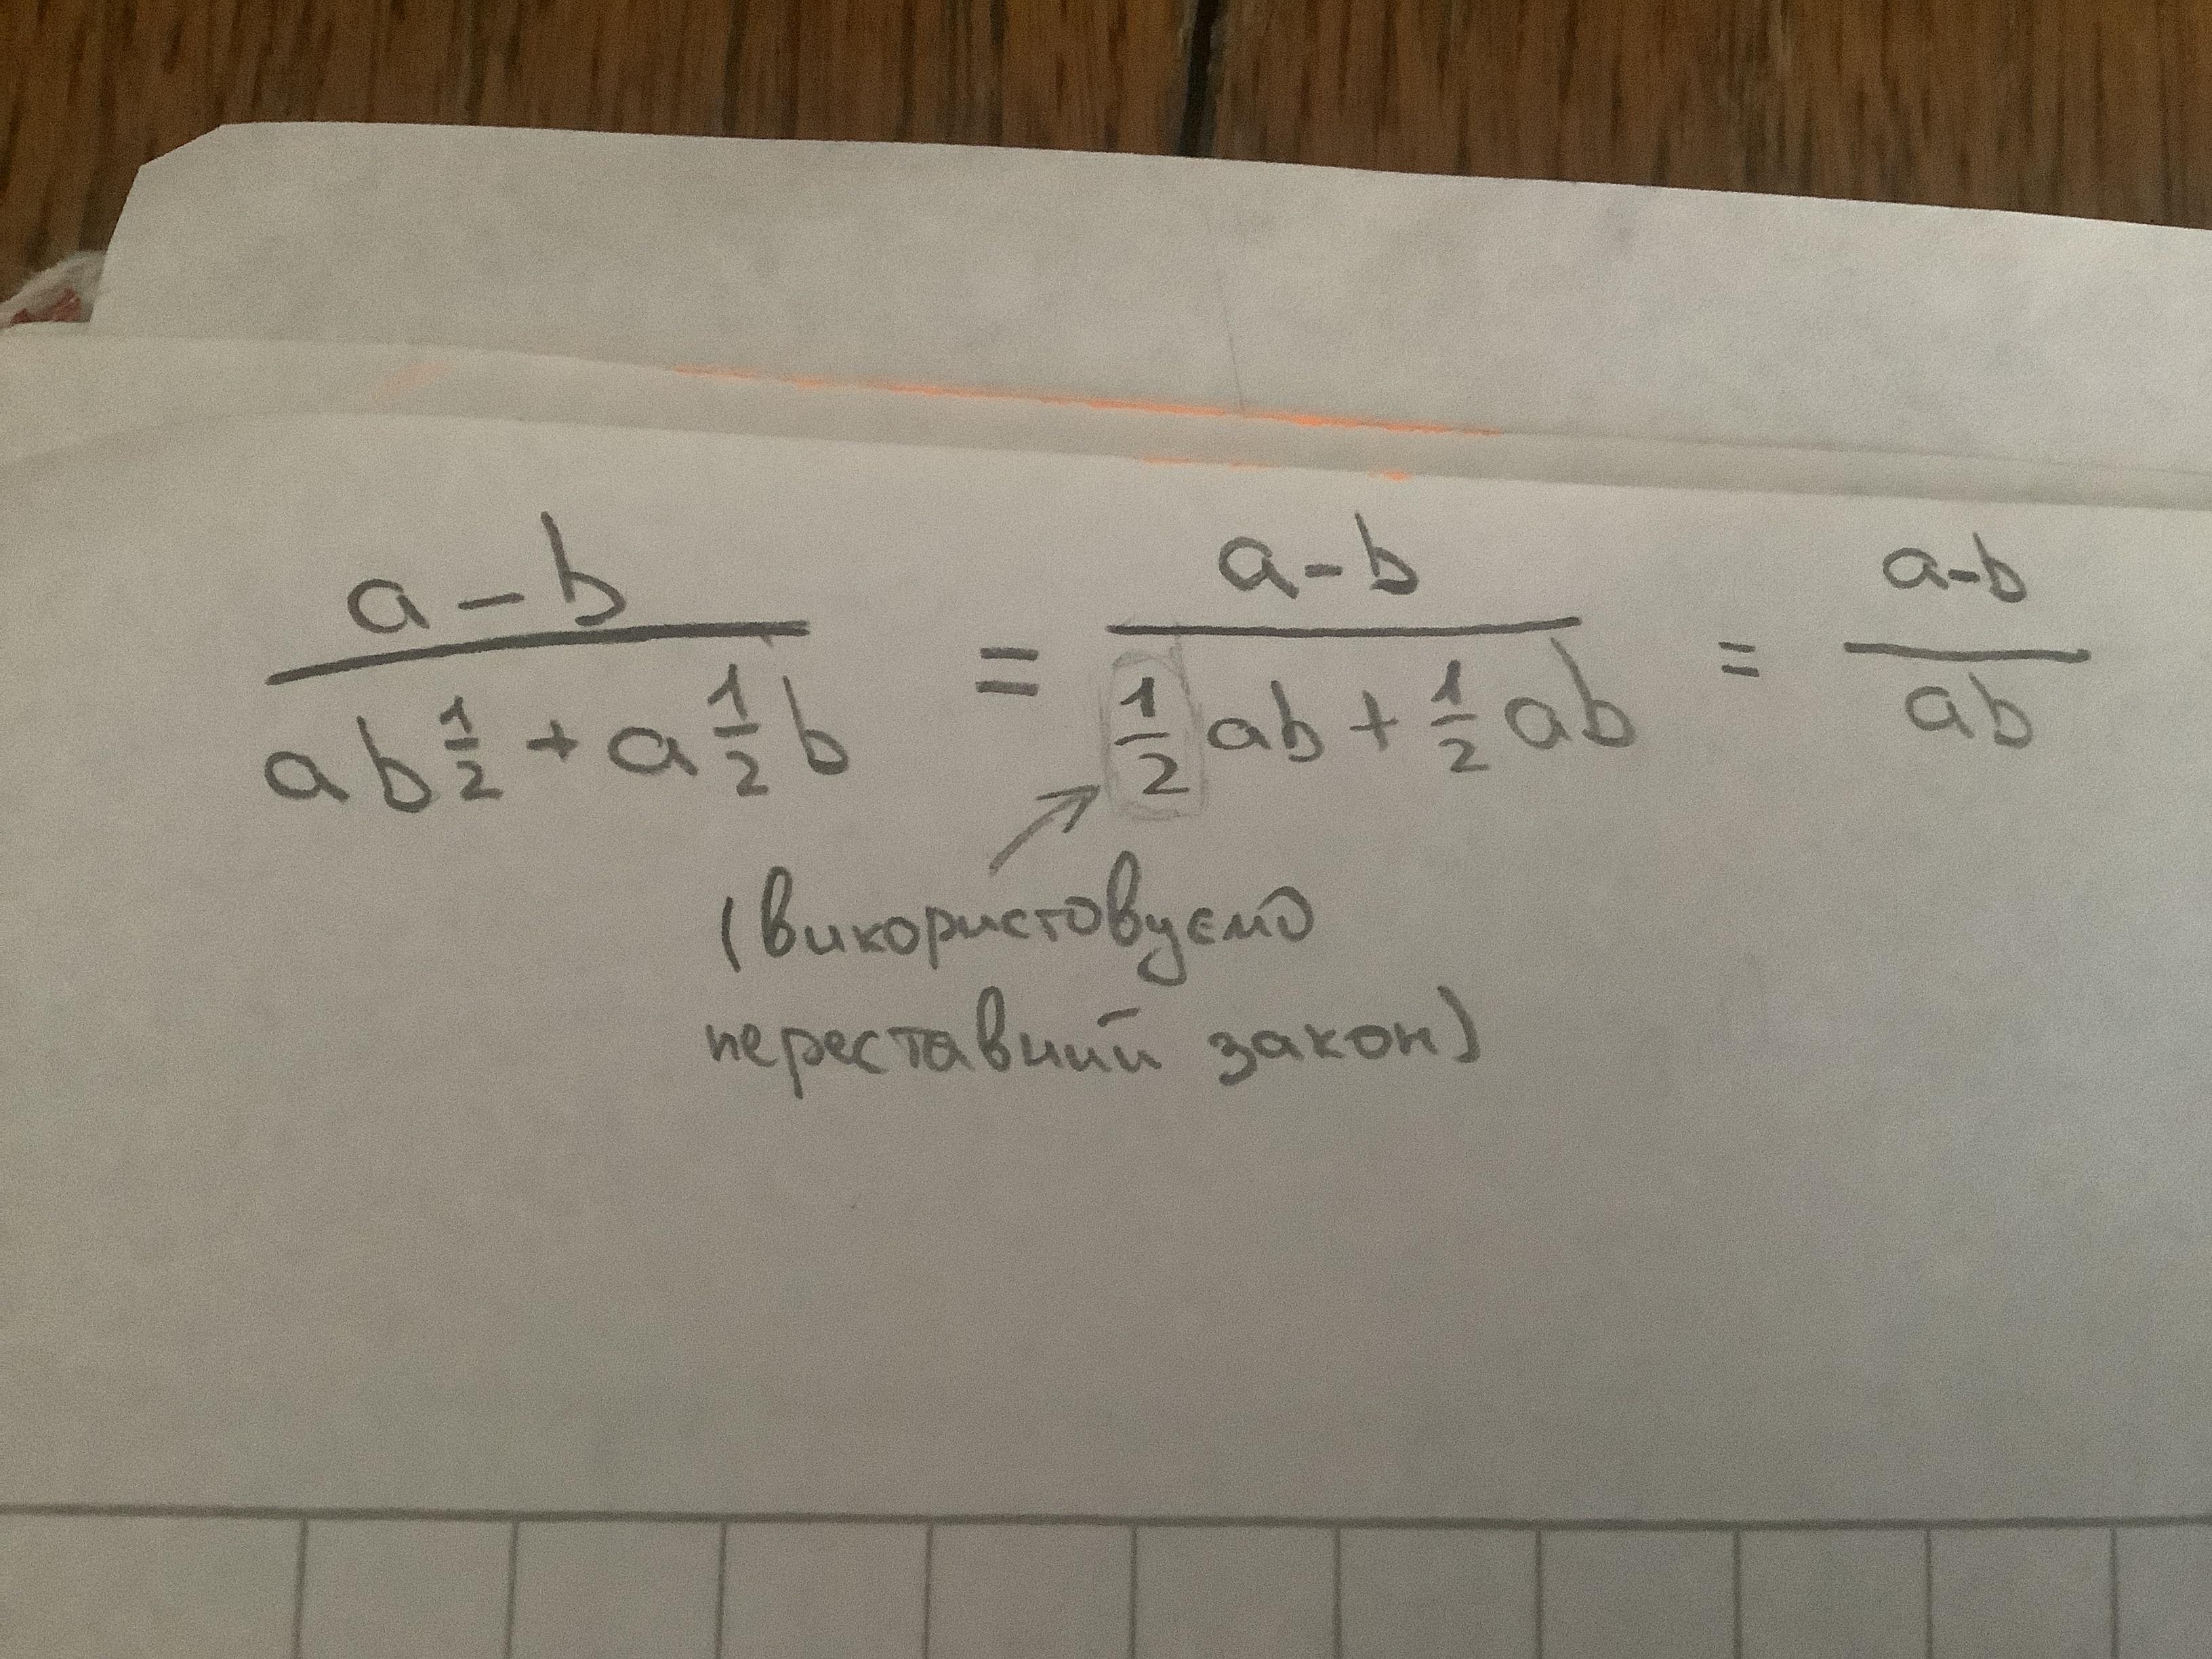 a - b / ab 1/2 + a 1/2 b = a - b / 1/2 ab + 1/2 ab = a - b / ab
(використовуємо
переставний закон)